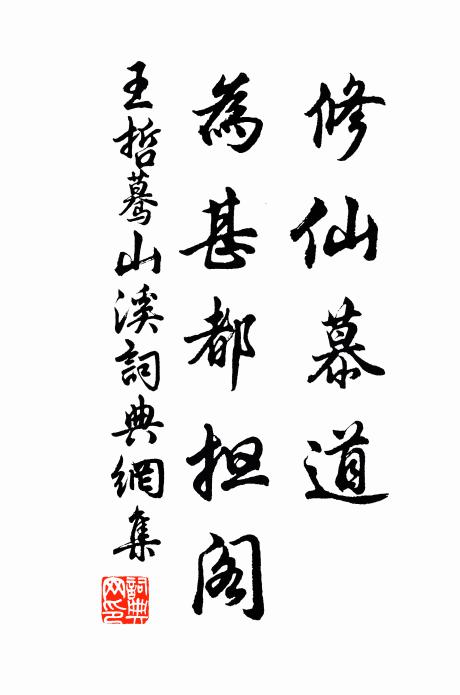 修仙慕道
為甚都担阁
王哲驀山溪詞典網集
詞典網印